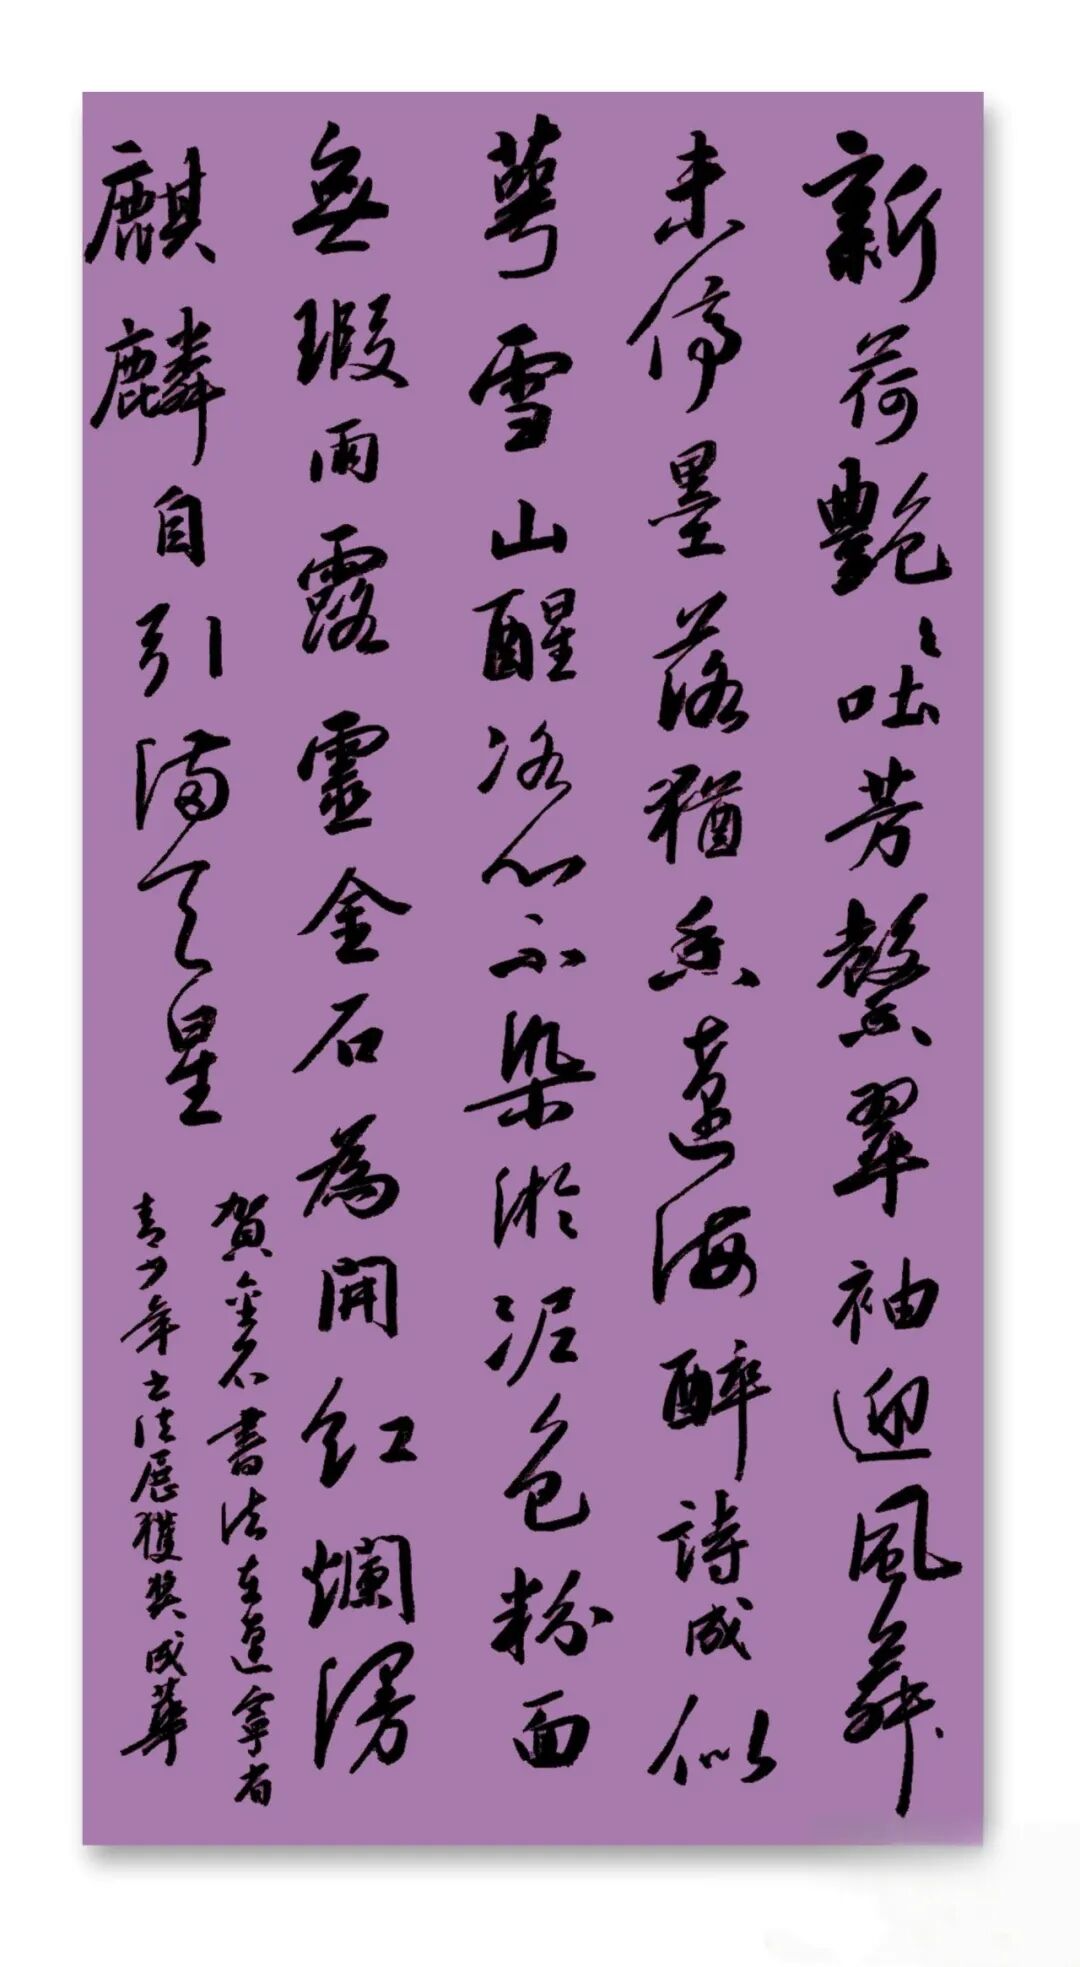 新荷艷艷吐芳馨翠袖迎風舞
未停墨落猶香遼海醉詩成似
萼雪山醒冰心不染淤泥色粉面
無瑕雨露靈金石為開紅爛漫
麒麟自引滿天星
賀金石書法在遼寧省
青少年書法展獲獎成華